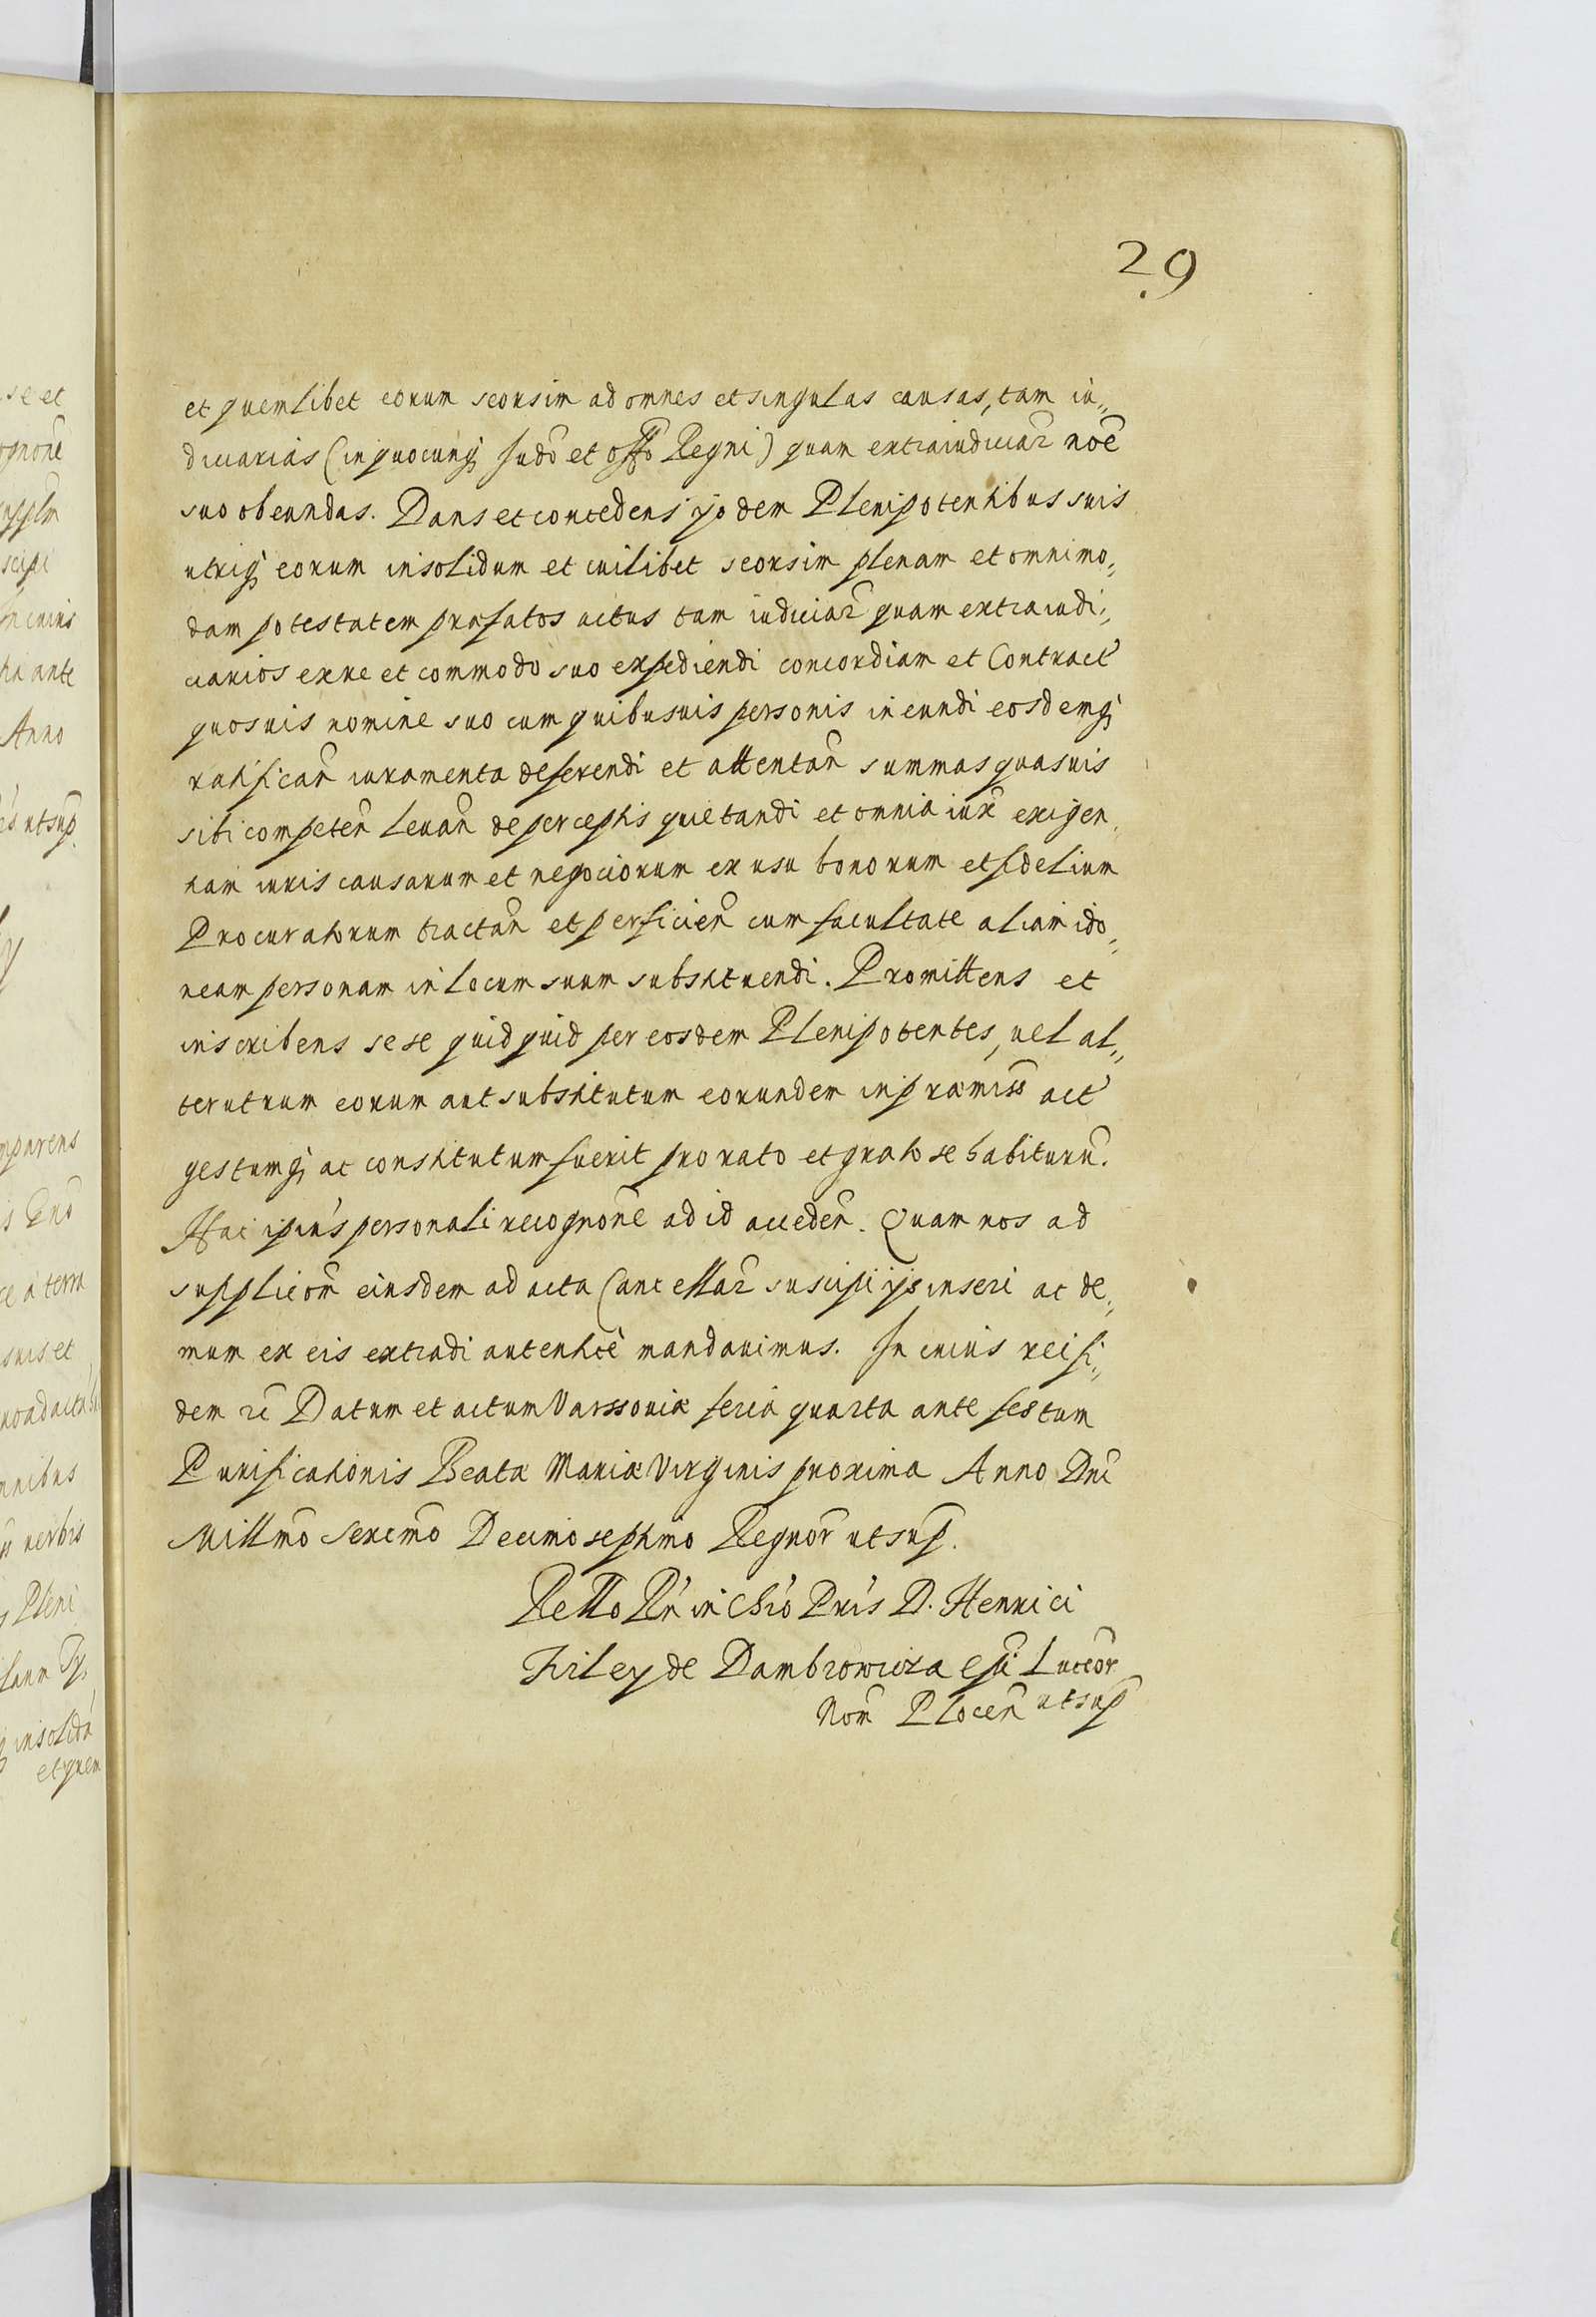 29
et quemlibet eorum seorsim ad omnes et singulas causas, tam iu„
diciarias (in quocunq; Judõ et offõ Regni) quam extraiudiciar̃ noẽ
suo obeundas. Dans et concedens ijsdem Plenipotentibus suis
utriq; eorum insolidum et cuilibet seorsim plenam et omnimo„
dam potestatem præfatos actus tam iudiciar̃ quam extraiudi„
ciarios ex re et commodo suo expediendi concordiam et Contract'
quosuis nomine suo cum quibusuis personis ineundi eosdemq;
ratificañ iuramenta deferendi et attentañ summas quasuis
sibi competeñ leuañ de perceptis quietandi et omnia iux̃ exigen„
tiam iuris causarum et negociorum ex usu bonorum et fidelium
Procuratorum tractañ et perficieñ cum facultate aliam ido„
neam personam in locum suum substituendi. Promittens et
inscribens sese quidquid per eosdem Plenipotentes, uel al„
terutrum eorum aut substitutum eorundem in præmiss̃ act'
gestumq; ac constitutum fuerit pro rato et grato se habiturũ.
Hac ipius personali recognoñe ad id accedeñ. Quam nos ad
supplicoñ eiusdem ad acta Cancellar̃ suscipi ijs inseri ac de„
mum ex eis extradi autenticè mandauimus. In cuius rei fi„
dem rc̃ Datum et actum Varssouiæ feria quarta ante festum
Purificationis Beatæ Mariæ Virginis proxima Anno Dñi
Millmõ Sexcmõ Decimo septimo Regnor̃ ut sup̃.
Rello Rñ in Chrõ Pris D. Henrici
Firley de Dambrowicza Epĩ Luceoř
Nom̃ Ploceñ ut sup̃